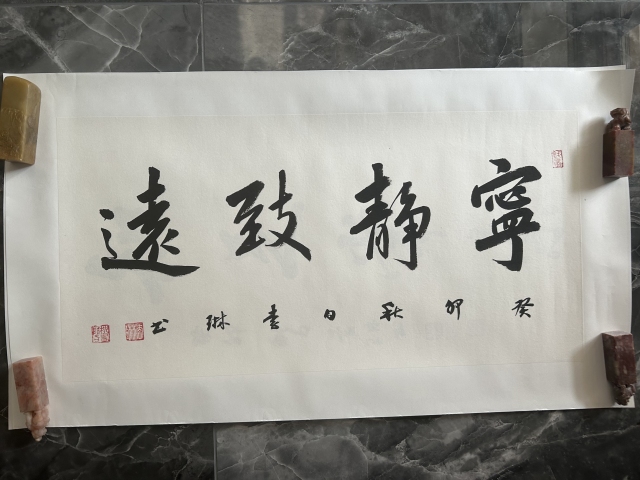 寧靜致遠
癸卯秋日李琳书